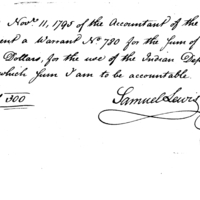 Novr. 11, 1795 of the Accountant of the
ent a Warrant No. 780 for the Sum of
Dollars, for the use of the Indian Dep
which Sum I am to be accountable.
300
Samuel Lewis